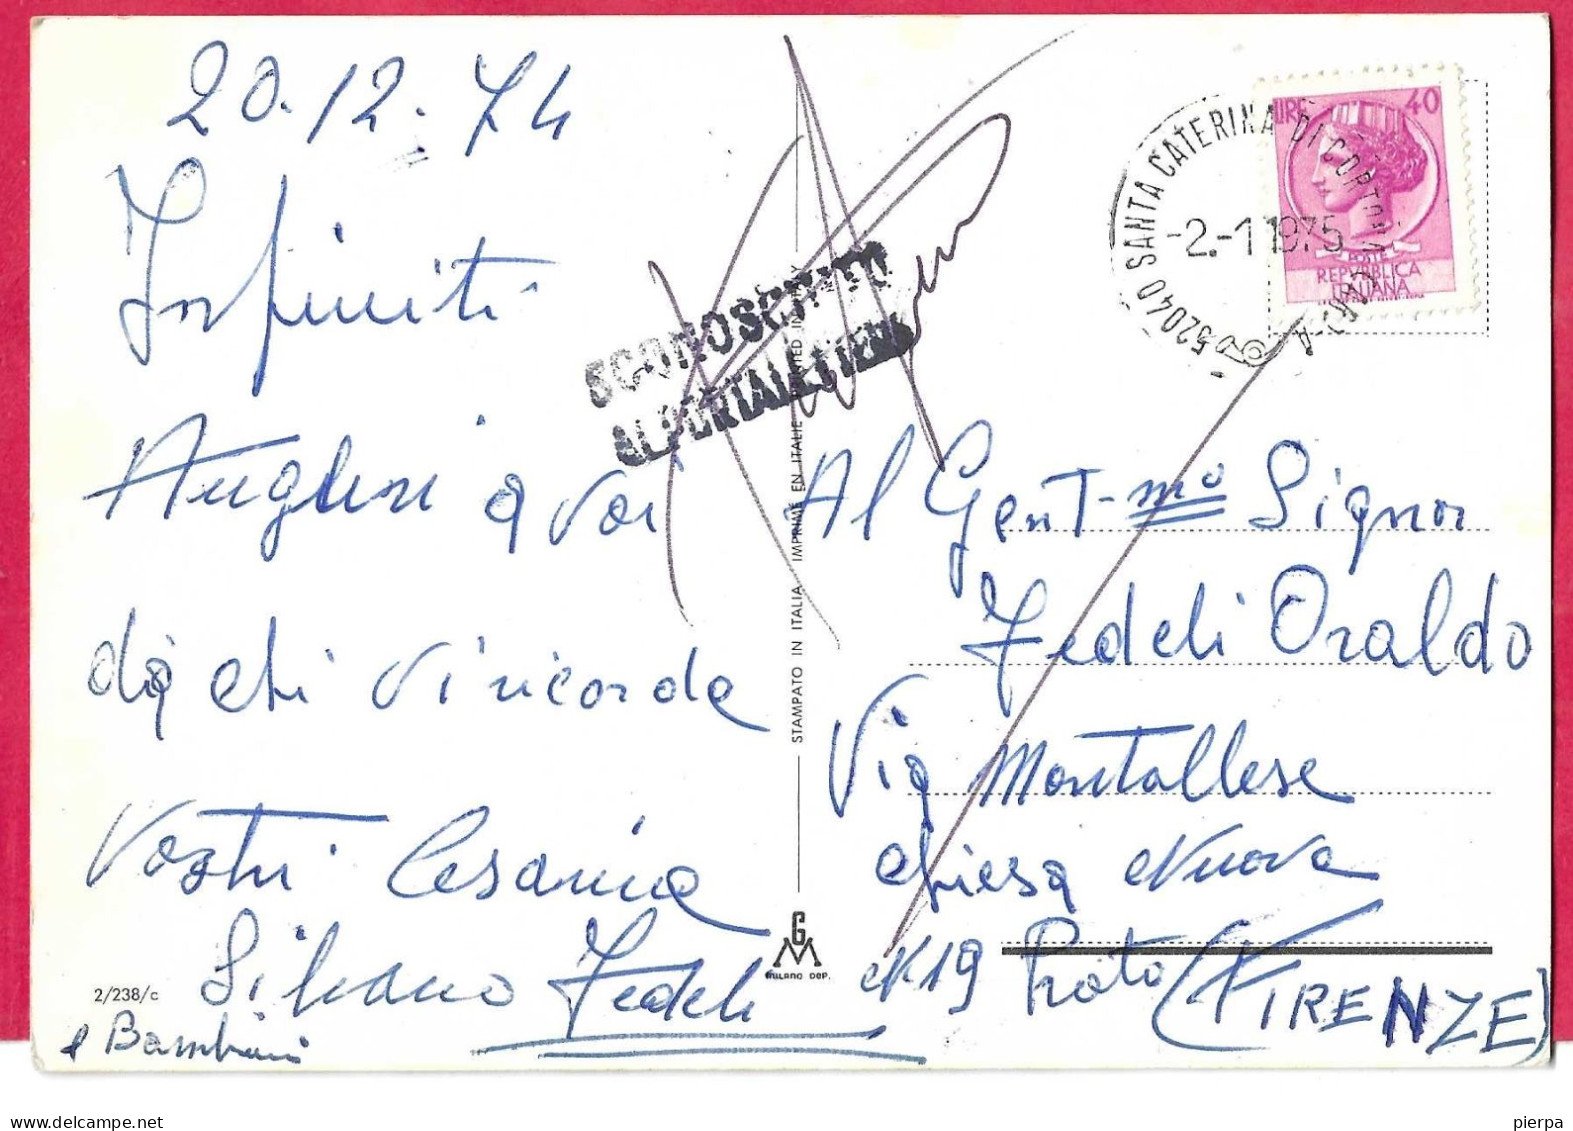 20.12.74
Infiniti
Auguri a voi
da chi vi ricorda
Vostri Cesarina
Silvano Fedeli
e Bambini
2/238/c
SCONOSCIUTO
AL PORTALETTERE
STAMPATO IN ITALIA IMPRIMÉ EN ITALIE PRINTED IN ITALY
GM
MILANO DEP.
52040 SANTA CATERINA DI CORTONA (AR) - A
-2.-1 1975
LIRE 40
POSTE
REPVBBLICA
ITALIANA
Al Gent-mo Signor
Fedeli Oraldo
Via Montallese
chiesa Nuova
N 19 Prato (FIRENZE)
pierpa